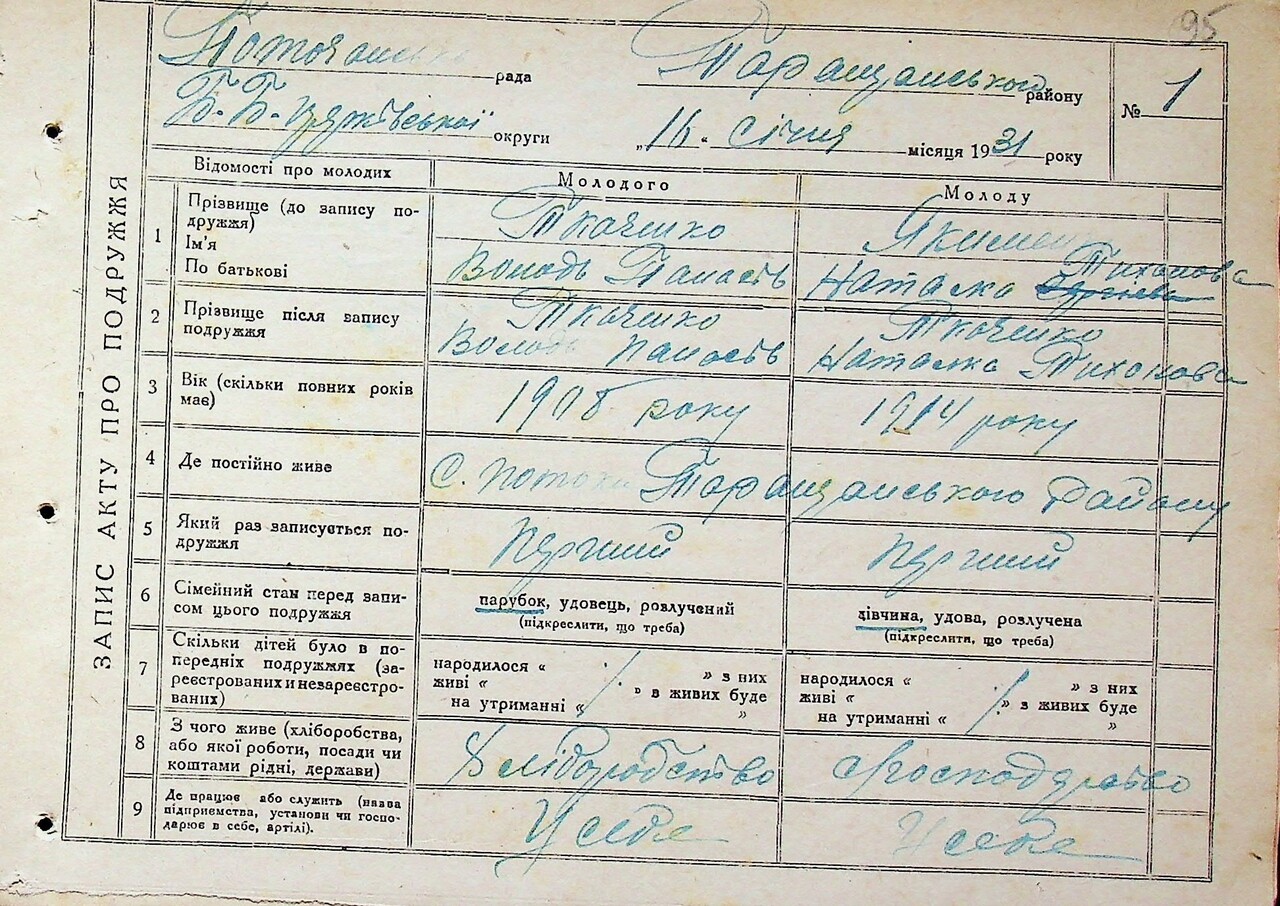 95
Поточанська рада Таращанського району № 1
Б.-Церківської округи „16“ січня місяця 1931 року
ЗАПИС АКТУ ПРО ПОДРУЖЖЯ
Відомості про молодих Молодого Молоду
1 Прізвище (до запису по-
дружжя) Ткаченко
Ім'я
По батькові Володь Панасів Наталка Тихонова
2 Прізвище після запису
подружжя Ткаченко Ткаченко
Володь Панасів Наталка Тихонова
3 Вік (скільки повних років
має) 1908 року 1914 року
4 Де постійно живе с. Потоки Таращанського району
5 Який раз записується по-
дружжя перший перший
6 Сімейний стан перед запи-
сом цього подружжя парубок, удовець, розлучений дівчина, удова, розлучена
(підкреслити, що треба) (підкреслити, що треба)
7 Скільки дітей було в по-
передніх подружжях (за-
реєстрованих и незареєстро-
ваних)
народилося « / » з них народилося « / » з них
живі « » в живих буде живі « » в живих буде
на утриманні « » на утриманні « »
8 З чого живе (хліборобства,
або якої роботи, посади чи
коштами рідні, держави) Хліборобство Господарство
9 Де працює або служить (назва
підприємства, установи чи госпо-
дарює в себе, артілі). У себе У себе